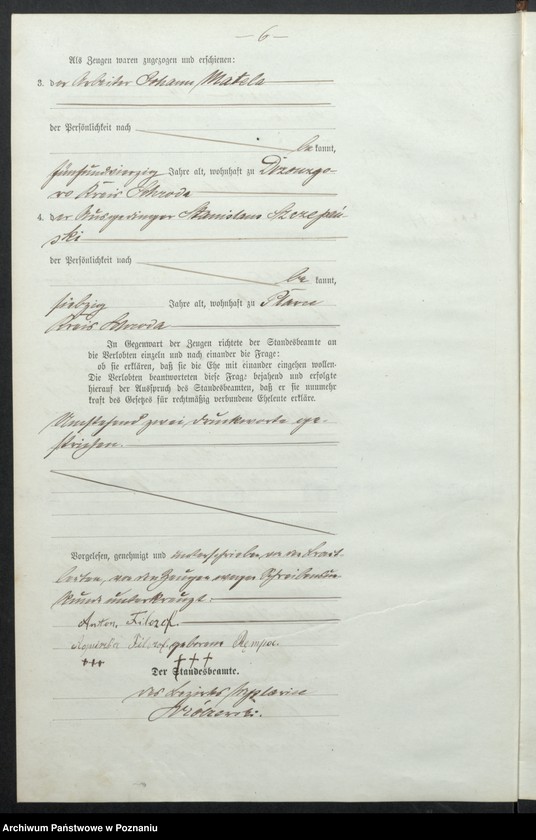 — 6 —
Als Zeugen waren zugezogen und erschienen:
3. der Arbeiter Johann Matela
der Persönlichkeit nach
be kannt,
fünfundvierzig Jahre alt, wohnhaft zu
Kreis Schroda
4. der Ausgedinger Stanislaus Szczepań-
ski
der Persönlichkeit nach
be kannt,
siebzig Jahre alt, wohnhaft zu Plawce
Kreis Schroda
In Gegenwart der Zeugen richtete der Standesbeamte an
die Verlobten einzeln und nach einander die Frage:
ob sie erklären, daß sie die Ehe mit einander eingehen wollen.
Die Verlobten beantworteten diese Frage bejahend und erfolgte
hierauf der Ausspruch des Standesbeamten, daß er sie nunmehr
kraft des Gesetzes für rechtmäßig verbundene Eheleute erkläre.
Umstehend zwei Druckworte ge-
strichen.
Vorgelesen, genehmigt und unterschrieben, von den Braut-
leuten, von den Zeugen wegen Schreibens un-
kunde unterkreuzt.
Anton Filozof.
Filozof geborene Rempa.
+++
+++
Der Standesbeamte.
des Bezirks
Archiwum Państwowe w Poznaniu